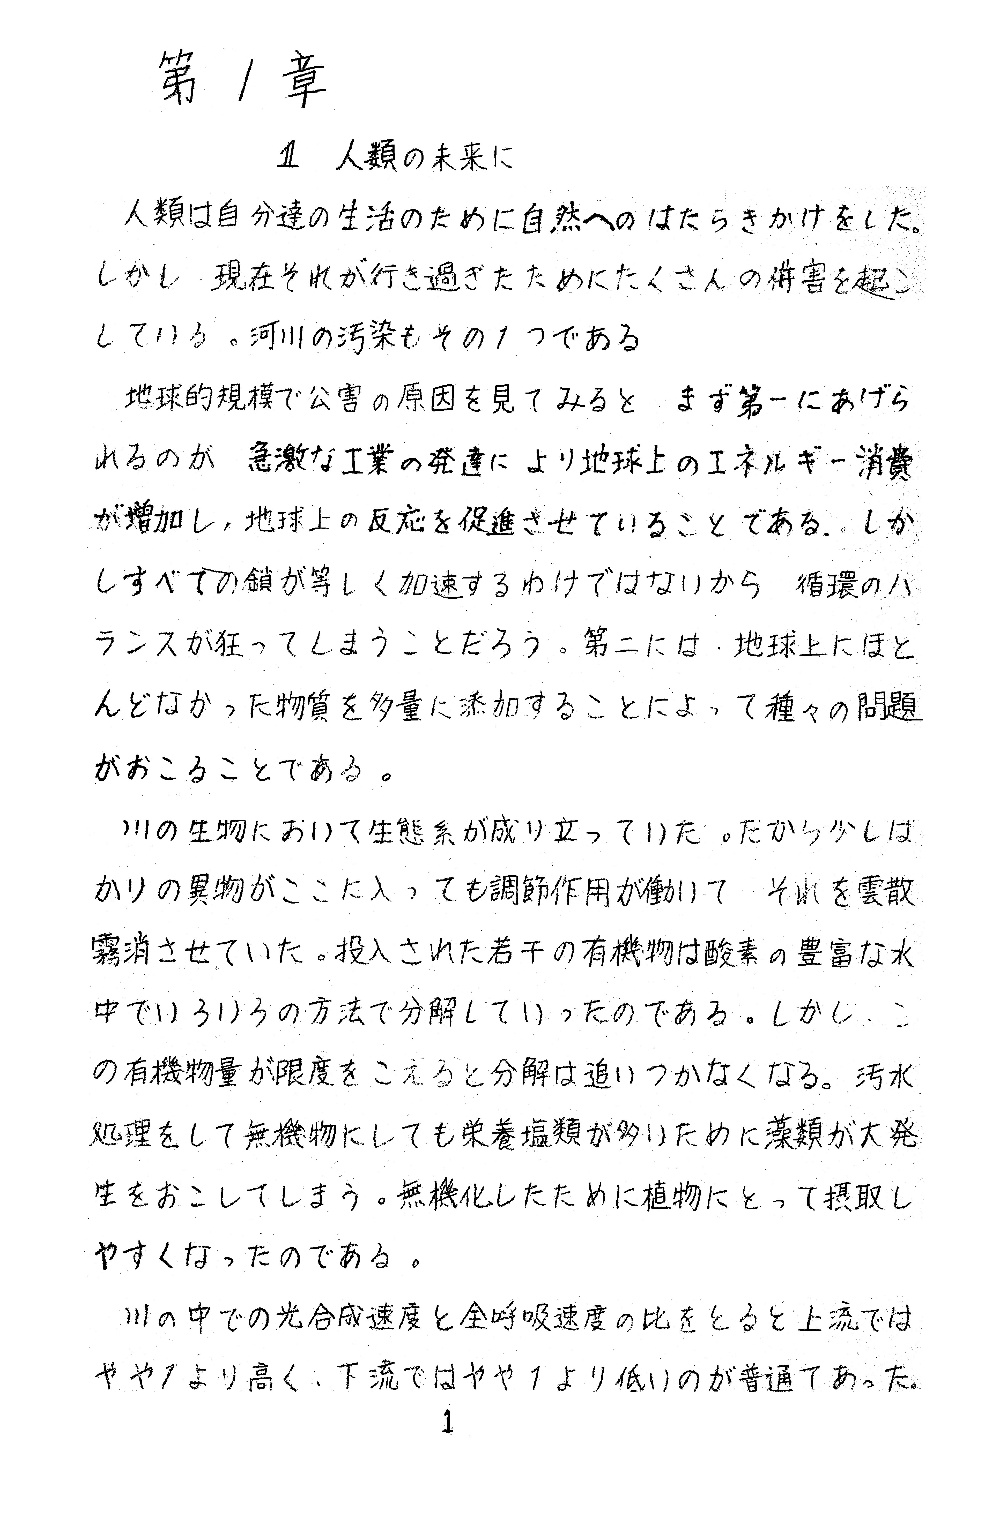 第1章
1 人類の未来に
人類は自分達の生活のために自然へのはたらきかけをした。
しかし 現在それが行き過ぎたためにたくさんの併害を起こ
している。河川の汚染もその1つである
地球的規模で公害の原因を見てみると まず第一にあげら
れるのが 急激な工業の発達により地球上のエネルギー消費
が増加し,地球上の反応を促進させていることである. しか
しすべての鎖が等しく加速するわけではないから 循環のバ
ランスが狂ってしまうことだろう。第二には、地球上にほと
んどなかった物質を多量に添加することによって種々の問題
がおこることである。
川の生物において生態系が成り立っていた。だから少しば
かりの異物がここに入っても調節作用が働いて それを雲散
霧消させていた。投入された若干の有機物は酸素の豊富な水
中でいろいろの方法で分解していったのである。しかし、こ
の有機物量が限度をこえると分解は追いつかなくなる。汚水
処理をして無機物にしても栄養塩類が多いために藻類が大発
生をおこしてしまう。無機化したために植物にとって摂取し
やすくなったのである。
川の中での光合成速度と全呼吸速度の比をとると上流では
やや1より高く、下流ではやや1より低いのが普通であった。
1